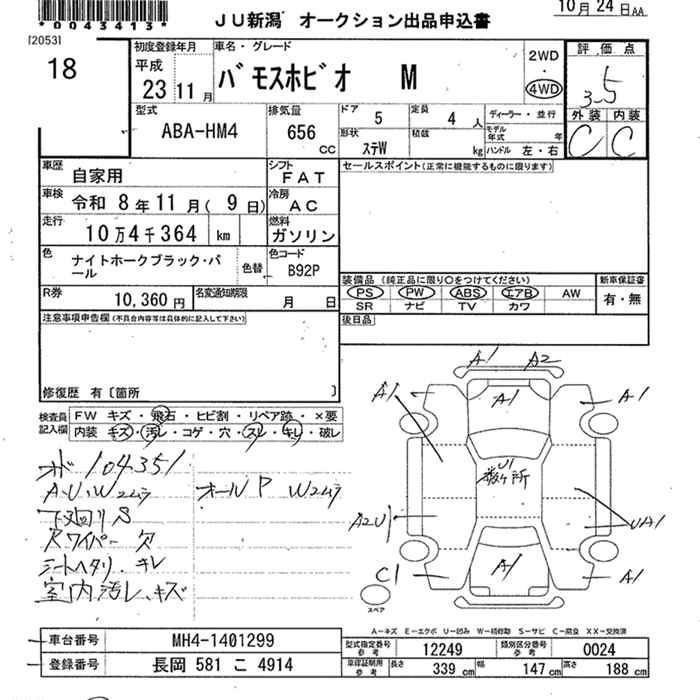 *0043413*
JU新潟 オークション出品申込書
10月 24日 AA
[2053]
18
初度登録年月
平成
23 11月
車名・グレード
バモスホビオ M
2WD
4WD
評価点
3.5
外装 内装
C C
型式
ABA-HM4
排気量
656
CC
ドア
5
定員
4 人
ディーラー・並行
形状
ステW
積載
kg
モデル年式 年
ハンドル 左・右
車歴
自家用
シフト
FAT
セールスポイント(正常に機能するものに限ります)
車検
令和 8年11月(9日)
冷房
AC
走行
10万4千364 km
燃料
ガソリン
色
ナイトホークブラック・パール
色替
色コード
B92P
装備品(純正品に限り○をつけてください)
PS PW ABS エアB AW
SR ナビ TV カワ
新車保証書
有・無
R券
10,360円
名変通知期限
月 日
後日品
注意事項申告欄(不具合内容等は具体的に記入して下さい)
修復歴 有〔箇所 〕
検査員記入欄
FW キズ・飛石・ヒビ割・リペア跡・×要
内装 キズ・汚レ・コゲ・穴・スレ・キレ・破レ
オド 104351
A・U・Wコムラ オールP Wコムラ
下廻りS
Rワイパー欠
シートヘタリ・キレ
室内汚レ、キズ
A1 A2
A1 A1 A1
U1
数ヶ所
A2U1 UA1
C1 A1 A1
スペア
A-キズ E-エクボ U-凹み W-補修跡 S-サビ C-腐食 XX-交換済
車台番号 MH4-1401299
登録番号 長岡 581 こ 4914
型式指定番号 参考 12249 類別区分番号 参考 0024
車庫証明用 参考 長さ 339 cm 幅 147 cm 高さ 188 cm